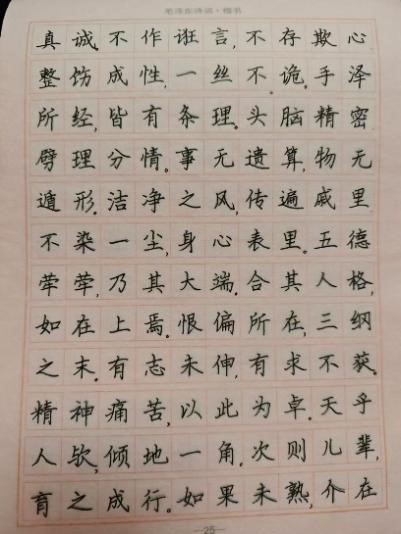 毛泽东诗词·楷书
真诚。不作诳言,不存欺心
整饬成性,一丝不诡。手泽
所经,皆有条理。头脑精密
劈理分情。事无遗算,物无
遁形。洁净之风,传遍戚里
不染一尘,身心表里。五德
荦荦,乃其大端。合其人格,
如在上焉。恨偏所在,三纲
之末。有志未伸,有求不获。
精神痛苦,以此为卓。天乎
人欤,倾地一角。次则儿辈,
育之成行。如果未熟,介在
—25—